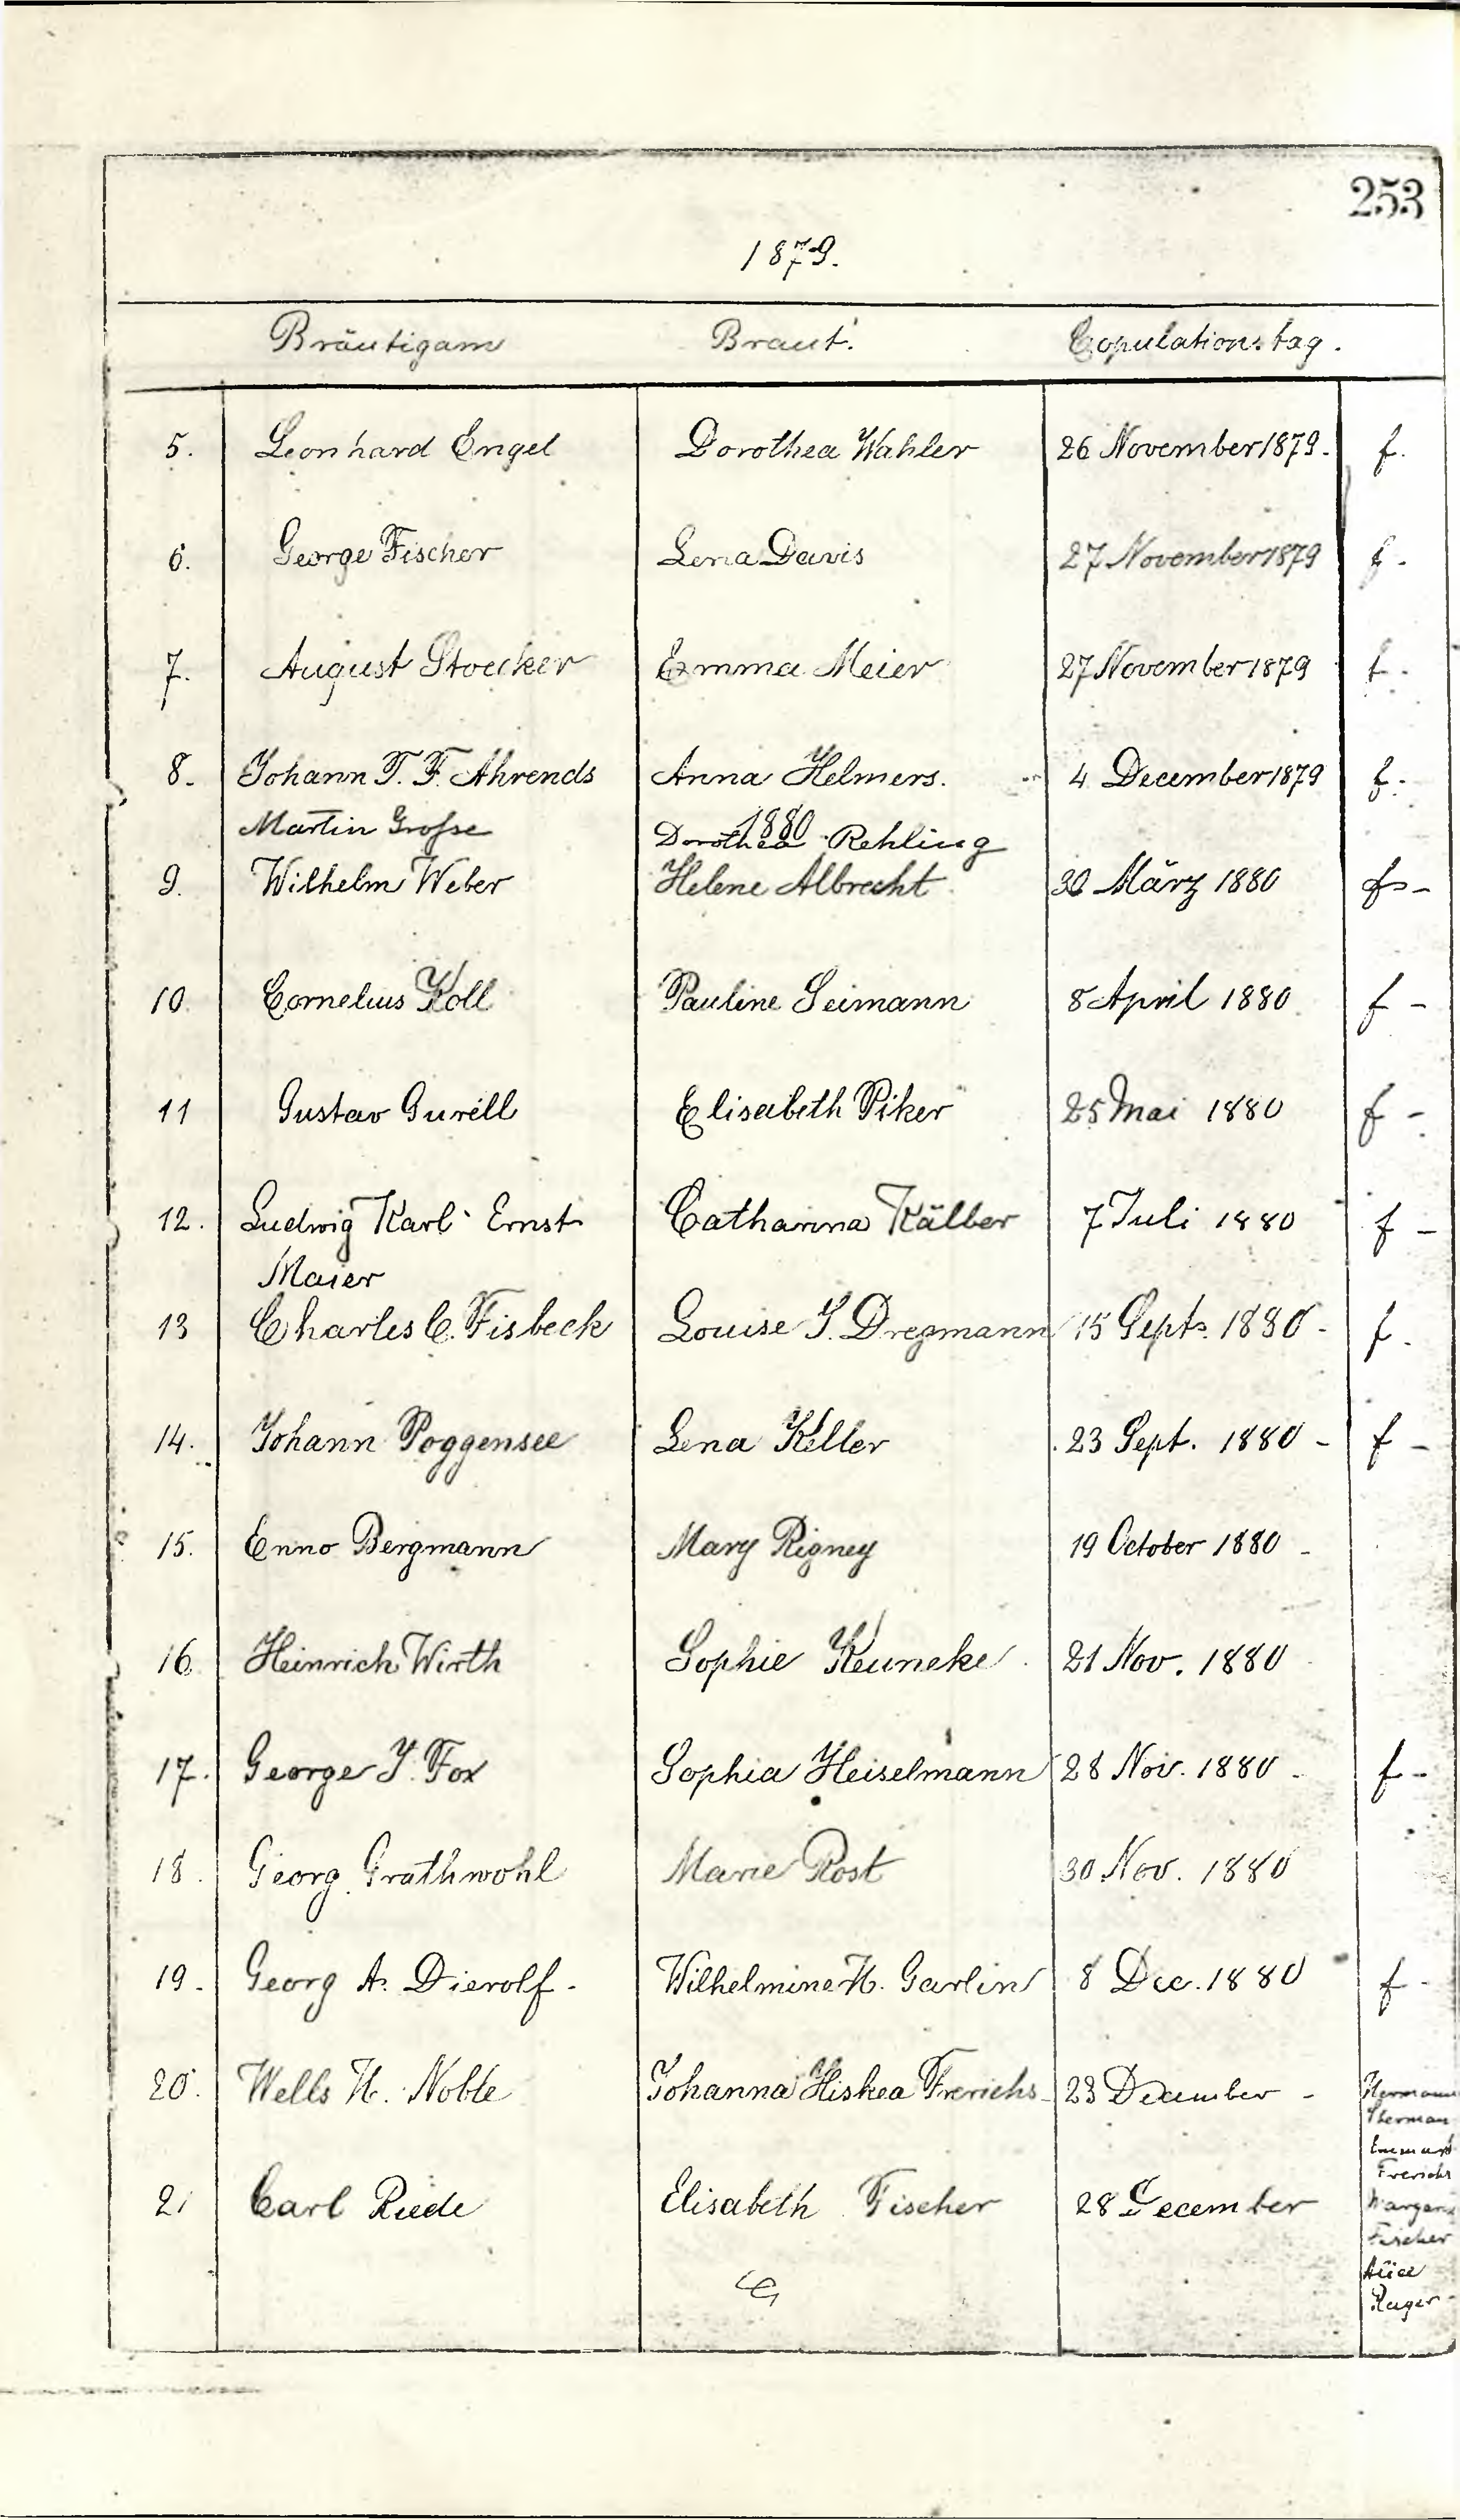 253
1879.
Bräutigam Braut. Copulationstag.
5. Leonhard Engel Dorothea Wahler 26 November 1879. f.
6. George Fischer Lena Davis 27 November 1879 f.
7. August Stoecker Emma Meier 27 November 1879 f.
8. Johann T. F. Ahrends Anna Helmers. 4 December 1879 f.
1880
Martin Grosse Dorothea Rehling
9. Wilhelm Weber Helene Albrecht 30 März 1880 f -
10. Cornelius Koll Pauline Seimann 8 April 1880 f -
11 Gustav Gurell Elisabeth Piker 25 Mai 1880 f -
12. Ludwig Karl Ernst Catharina Kälber 7 Juli 1880 f -
Maier
13 Charles C. Fisbeck Louise J. Dregmann 15 Sept. 1880 - f.
14. Johann Poggensee Lena Keller 23 Sept. 1880 - f -
15. Enno Bergmann Mary Rigney 19 October 1880 -
16 Heinrich Wirth Sophie Keuneke 21 Nov. 1880
17. George J. Fox Sophia Heiselmann 28 Nov. 1880 - f -
18. Georg Grathwohl Marie Rost 30 Nov. 1880
19. Georg A. Dierolf - Wilhelmine H. Garlin 8 Dec. 1880 f -
20. Wells H. Noble Johanna Hiskea Frerichs 23 December - Hermann
Sherman
Frerichs
21 Carl Riede Elisabeth Fischer 28 December
Fischer
Alice
Ruger